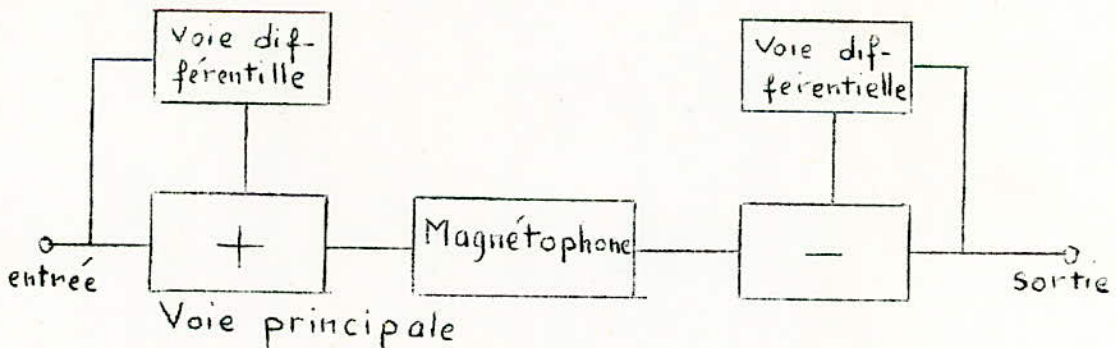 Voie dif-
férentille
Voie dif-
ferentielle
+
Magnétophone
−
entréé
Sortie
Voie principale